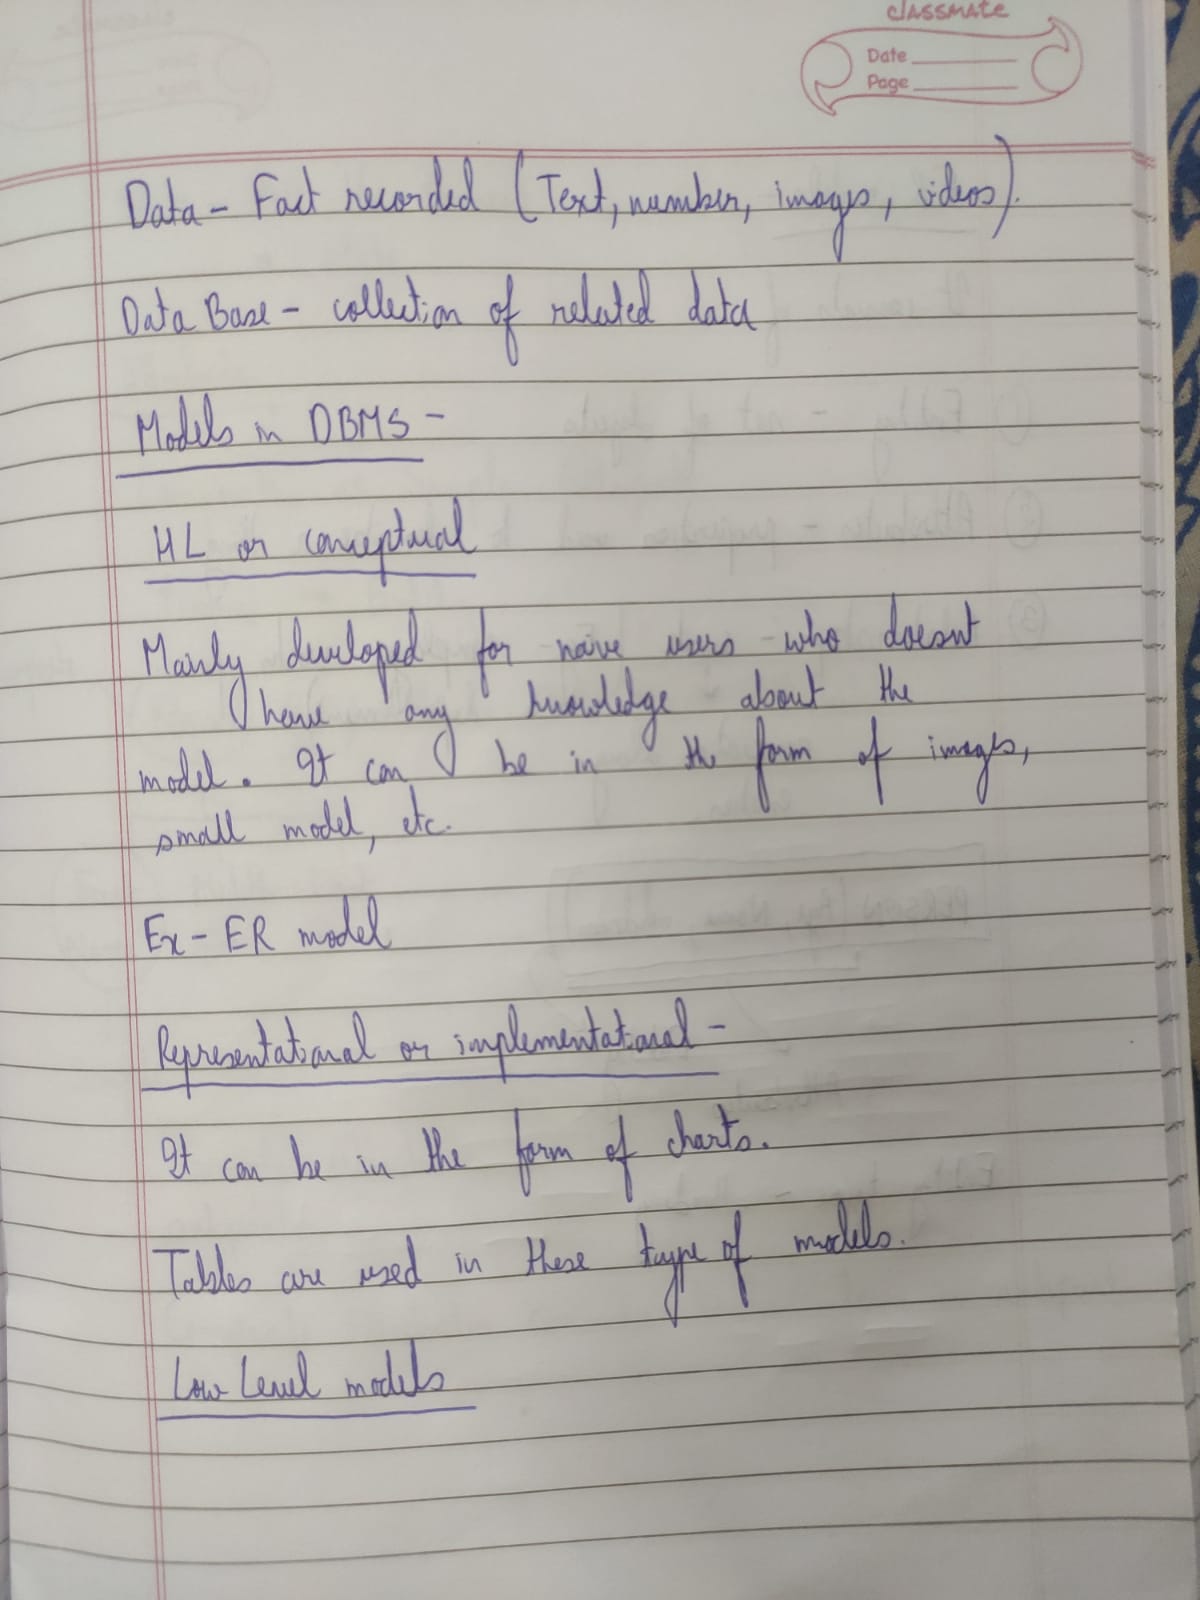 classmate
Date
Page
Data - Fact recorded (Text, number, images, videos).
Data Base - collection of related data
Models in DBMS -
HL or conceptual
Mainly developed for naive users who doesnt
have any knowledge about the
model. It can be in the form of images,
small model, etc.
Ex - ER model
Representational or implementational -
It can be in the form of charts.
Tables are used in these type of models.
Low Level models